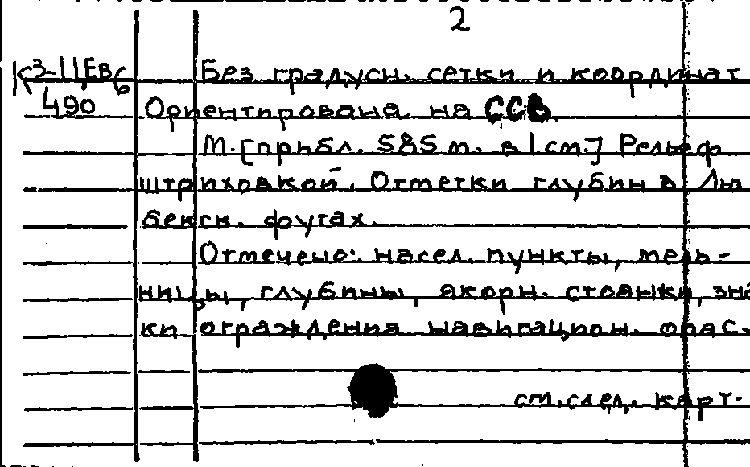 2
К3-11ЕВ6 Без градусн. сетки и координат
490 Ориентирована на ССВ.
М. [прибл. 585 м. в 1 см.] Рельеф
штриховкой. Отметки глубин в Лы
бекск. футах.
Отмечено: насел. пункты, мель-
ницы, глубины, якорн. стоянки, зна
ки ограждения навигацион. опас.
см. след. карт.